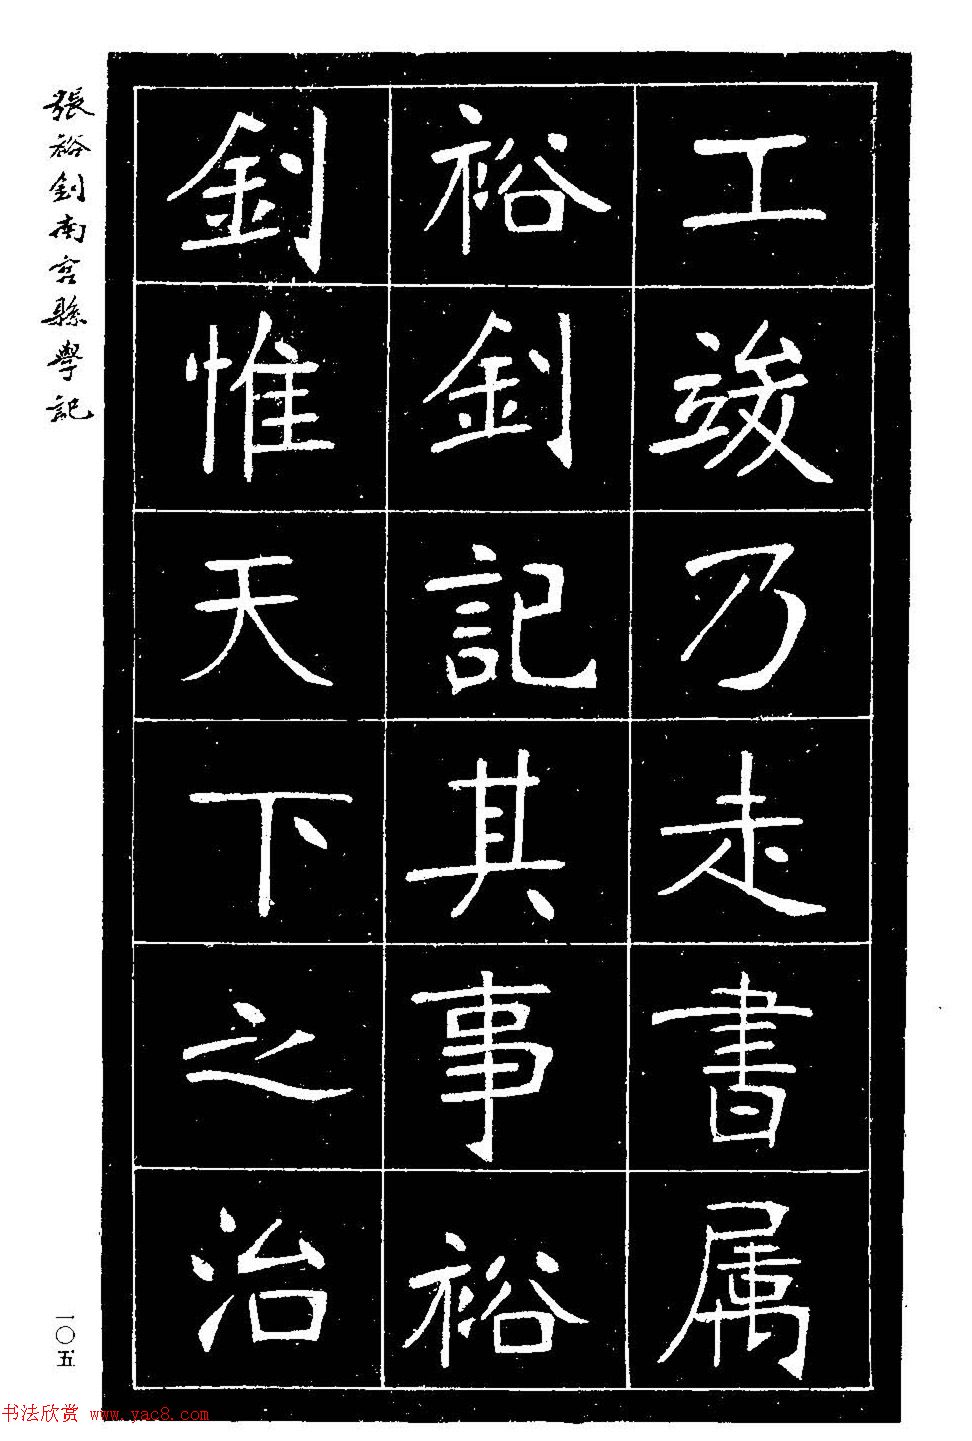 工竣乃走書属
裕釗記其事裕
釗惟天下之治
張裕釗南宮縣學記
一〇五
书法欣赏 www.yac8.com